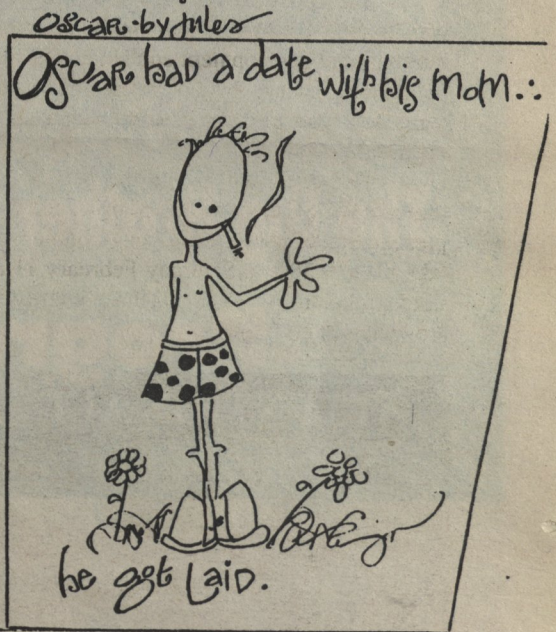 Oscar · by Jules
Oscar had a date with his mom.:
he got Laid.